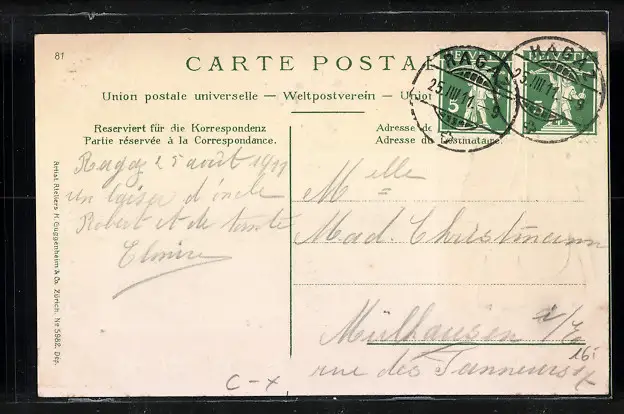 81
CARTE POSTALE
Union postale universelle — Weltpostverein — Union
Reserviert für die Korrespondenz
Partie réservée à la Correspondance.
Adresse de
Adresse du Destinataire
RAGAZ
25.III.11. 9
5
RAGAZ
25.III.11. 9
5
Ragaz 25 août 1911
un baiser d'oncle
Robert et de tante
Melle
Mad. Christmann
Mülhausen i/
rue des Tanneurs
16
C-x
Artist. Ateliers H. Guggenheim & Co. Zürich. No 5982. Dép.